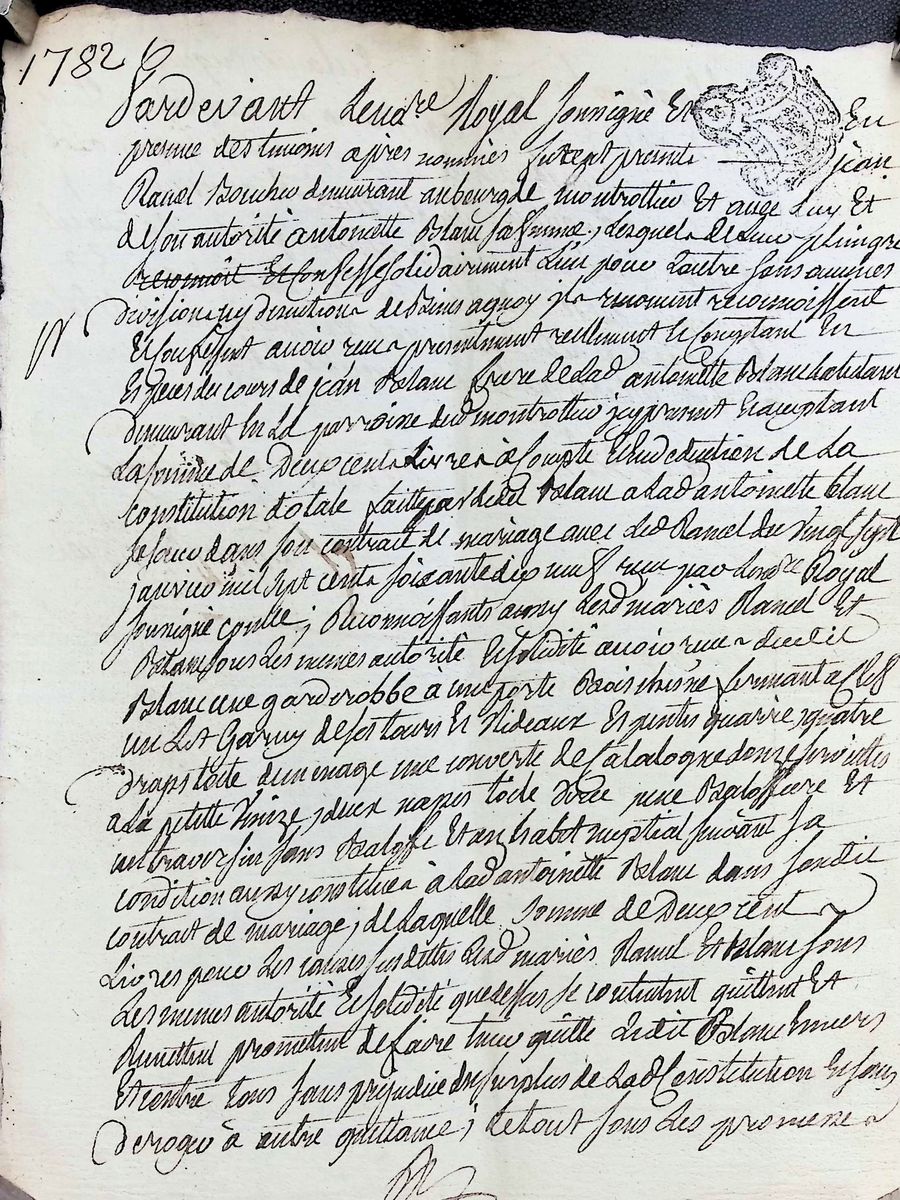 1782
Pardevant Le no.re Royal soussigné Et En
presence des temoins apres nommés furent presents jean
Ravel Boucher demeurant au bourg de montrottier Et avec Luy Et
de son autorité antoinette Blanc sa femme, Lesquels de Leur plein gré
reconnoit Et Confesse solidairement L'un pour L'autre sans aucunes
division ny discution de Biens a quoy ils renoncent reconnoissent
Et Confessent avoir receu presentement réellement Et Comptant En
Especes du cours de jean Blanc frere de lad antoinette Blanc habitant
demeurant En La parroisse dud montrottier icy present Et acceptant
La somme de Deux cents Livres à compte Et en deduction de La
constitution dotale faitte par led Blanc a lad antoinette blanc
sa soeur dans son contrat de mariage avec led Ravel du vingt sept
janvier mil sept cents soixante dix neuf receu par Le no.re Royal
soussigné controllé ; Reconnoissants aussy Lesd mariés Ravel Et
Blanc sous Les memes autorité Et solidité avoir receu dudit
Blanc une garderobbe à une porte Bois chesne fermant a Clef
un Lit Garny de ses tours Et Rideaux Et pentes quarré, quatre
draps toile de menage une converte de Catalogne douze serviettes
a La petitte Venize, deux napes toile une Baloffiere Et
un traversin sans Baloffe Et un habot nuptial suivant sa
condition aussy constitués à lad antoinette Blanc dans sondit
contrat de mariage, de Laquelle somme de Deux cent
Livres pour Les causes susdittes Lesd mariés Ravel Et Blanc sous
Les memes autorité Et solidité que dessus se contentent quittent Et
promettent de faire tenir quitte Ledit Blanc Envers
Et contre tous sans prejudice du surplus de Lad Constitution Et sans
deroger à autre quittance ; Le tout sous Les promesses